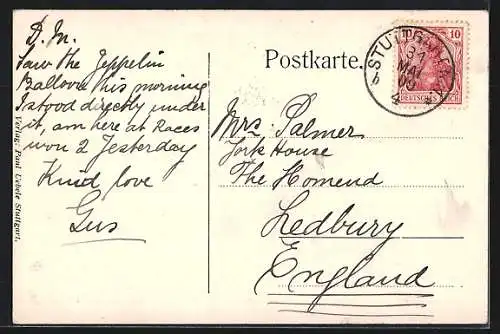 D. M.
Saw the Zeppelin
Balloon this morning
I stood directly under
it, am here at Races
won 2 Yesterday
Kind love
Gus
Verlag: Paul Uebele Stuttgart.
Postkarte.
STUTTGART
31
MAI
10
DEUTSCHES REICH
Mrs: Palmer
York House
The Homend
Ledbury
England